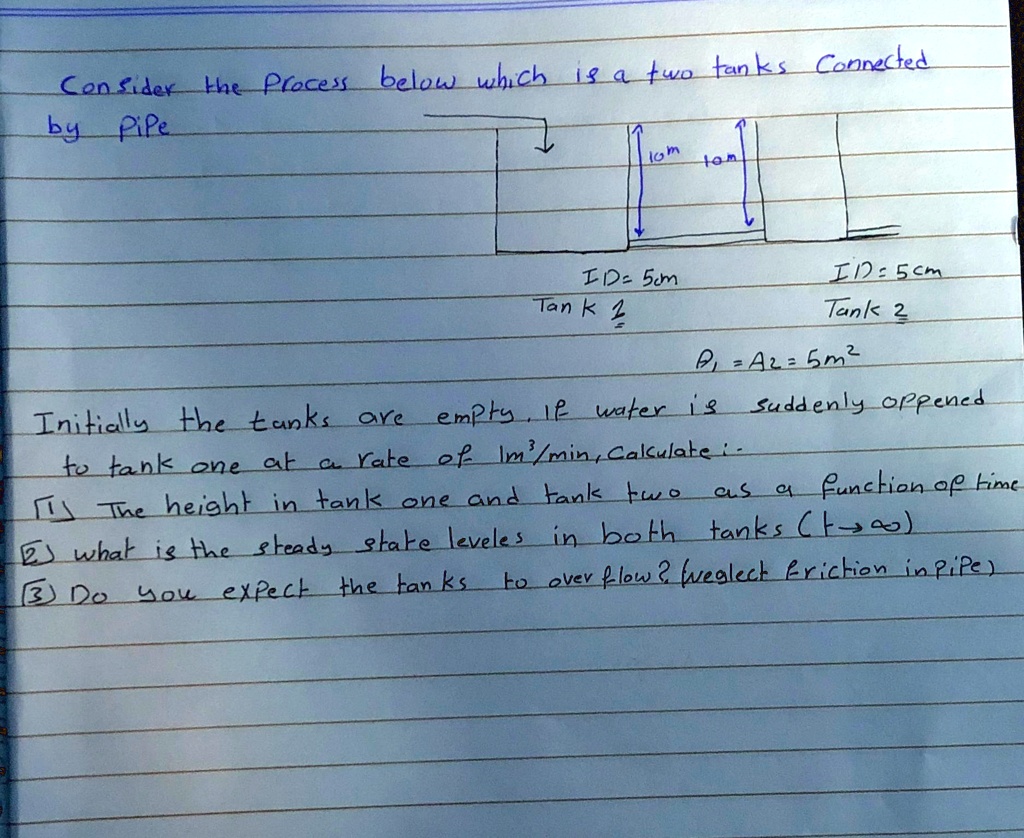 Consider the Process below which is a two tanks Connected
by PiPe
10m 10m
ID= 5cm ID= 5cm
Tank 1 Tank 2
A1 = A2 = 5m²
Initially the tanks are empty. If water is suddenly oppened
to tank one at a rate of 1m³/min, Calculate :-
[1] The height in tank one and tank two as a function of time
[2] what is the steady state leveles in both tanks (t→∞)
[3] Do you expect the tanks to over flow? (neglect friction in PiPe)